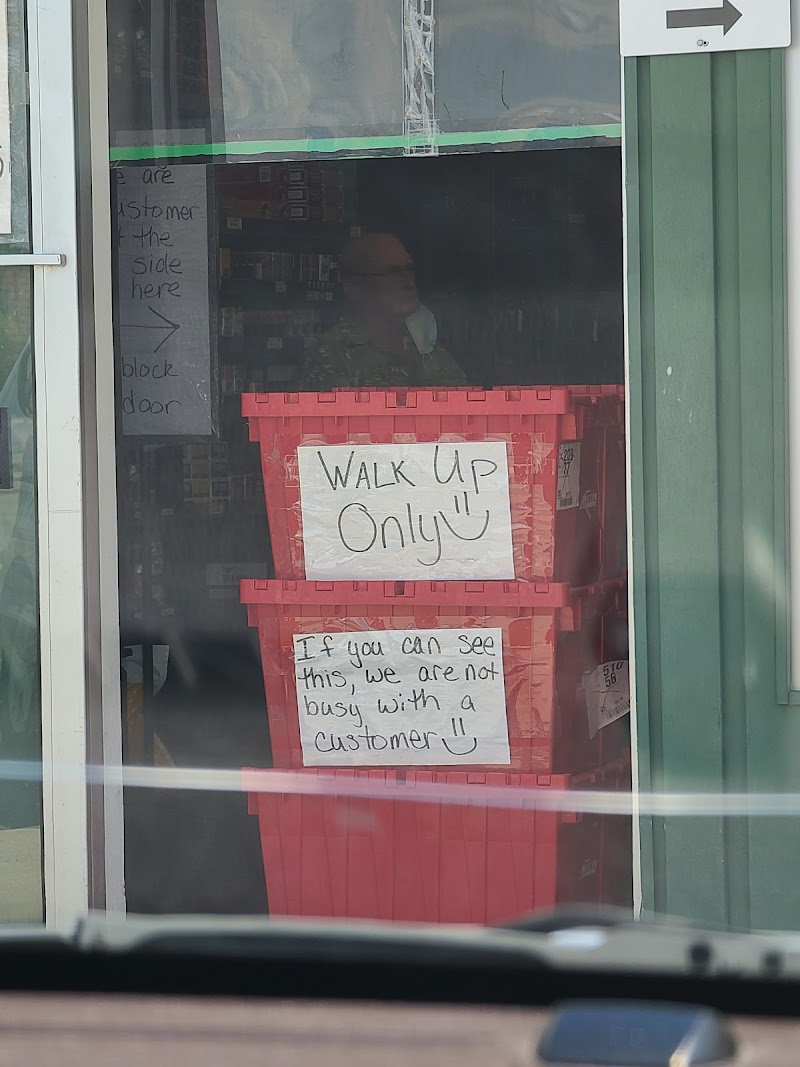 are
ustomer
the
side
here
block
door
WALK Up
Only
If you can see
this, we are not
busy with a
customer
570
56